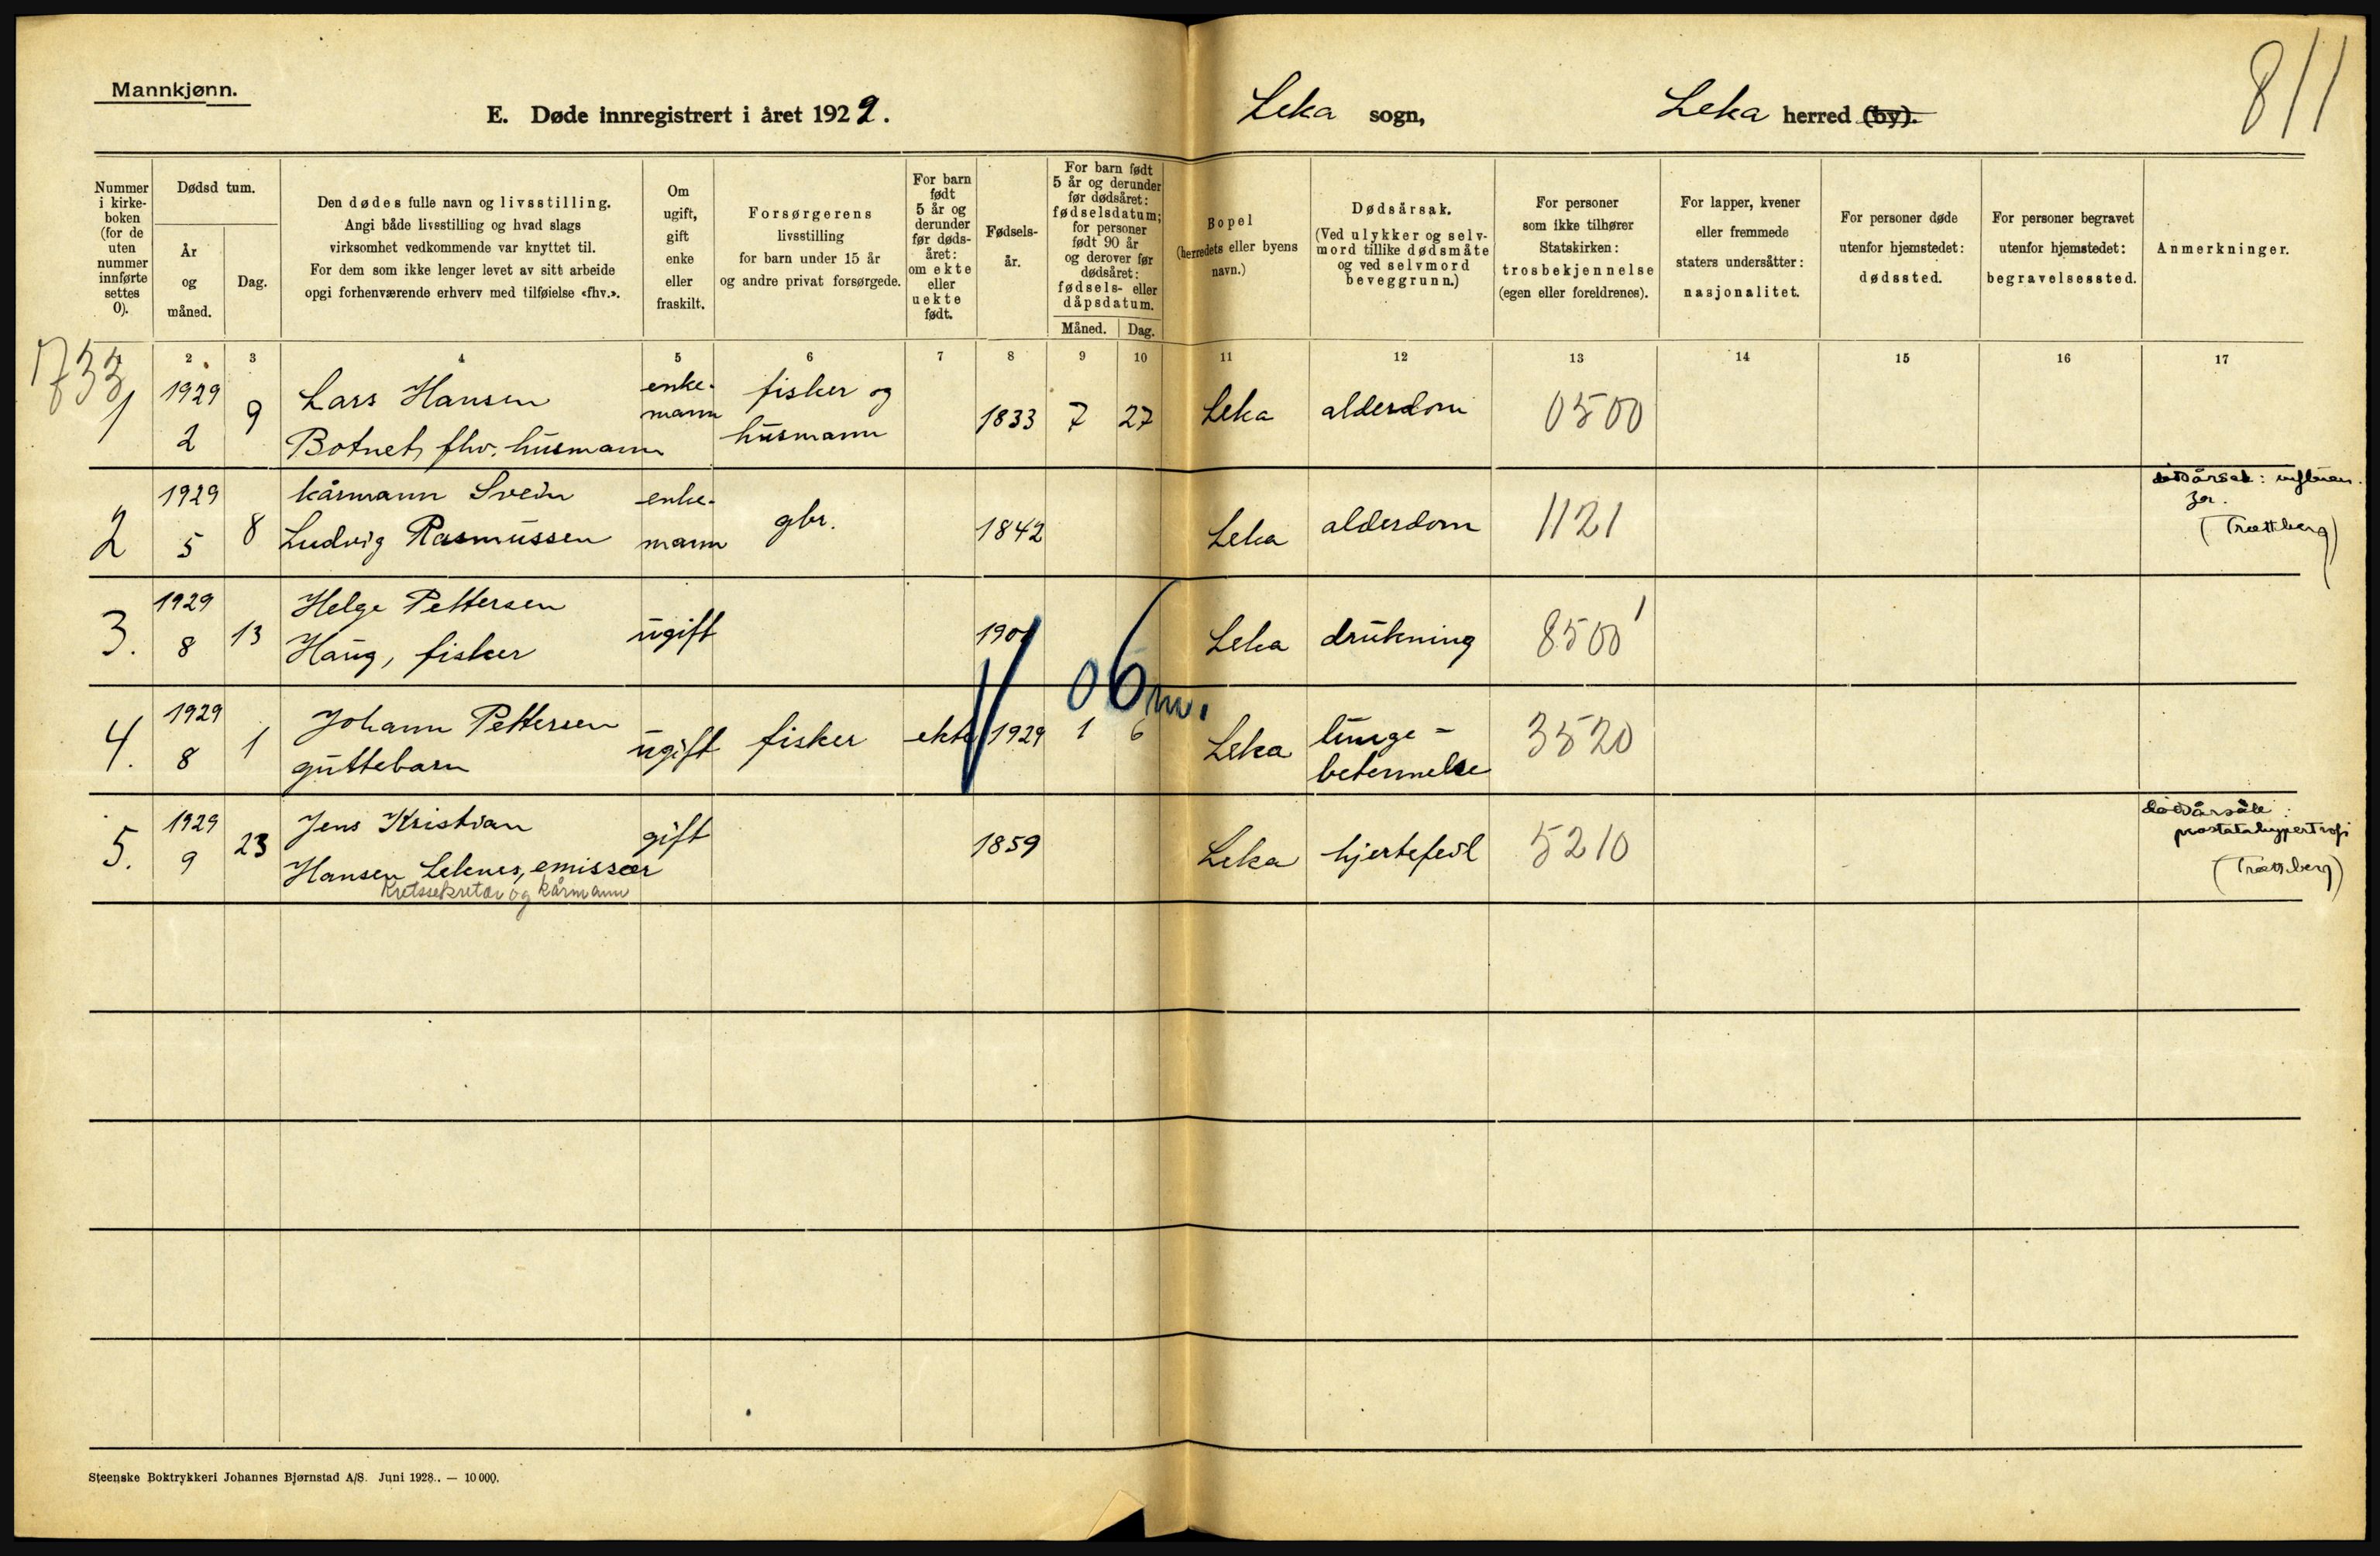 Mannkjønn.
E. Døde innregistrert i året 1929.
Leka sogn,
Leka herred (by).
811
Nummer i kirke- boken (for de uten nummer innførte settes 0).
Dødsd tum.
År og måned.
Dag.
Den dødes fulle navn og livsstilling.
Angi både livsstilling og hvad slags
virksomhet vedkommende var knyttet til.
For dem som ikke lenger levet av sitt arbeide
opgi forhenværende erhverv med tilføielse «fhv.».
Om ugift, gift enke eller fraskilt.
Forsørgerens
livsstilling
for barn under 15 år
og andre privat forsørgede.
For barn født 5 år og derunder før døds- året: om ekte eller uekte født.
Fødsels- år.
For barn født 5 år og derunder før dødsåret: fødselsdatum; for personer født 90 år og derover før dødsåret: fødsels- eller dåpsdatum.
Måned. Dag.
Bopel
(herredets eller byens
navn.)
Dødsårsak.
(Ved ulykker og selv-
mord tillike dødsmåte
og ved selvmord
beveggrunn.)
For personer
som ikke tilhører
Statskirken:
trosbekjennelse
(egen eller foreldrenes).
For lapper, kvener
eller fremmede
staters undersåtter:
nasjonalitet.
For personer døde
utenfor hjemstedet:
dødssted.
For personer begravet
utenfor hjemstedet:
begravelsessted.
Anmerkninger.
2 3 4 5 6 7 8 9 10 11 12 13 14 15 16 17
1733
1 1929 2 9 Lars Hansen
Botnet, fhv. husmann
enke-
mann
fisker og
husmann
1833 7 27 Leka alderdom 0500
2 1929 5 8 kårmann Svein
Ludvig Rasmussen
enke-
mann
gbr. 1842 Leka alderdom 1121
dødsårsak: influen-
za.
(Trættberg)
3. 1929 8 13 Helge Pettersen
Haug, fisker
ugift Leka drukning 8500 1
06 m.
4. 1929 8 1 Johann Pettersen
guttebarn
ugift fisker ekte 1929 1 6 Leka lunge-
betennelse
3520
5. 1929 9 23 Jens Kristian
Hansen Leknes, emissær
Kretssekretær og kårmann
gift 1859 Leka hjertefeil 5210
dødsårsak:
prostatahypertrofi
(Trættberg)
Steenske Boktrykkeri Johannes Bjørnstad A/S. Juni 1928. — 10 000.